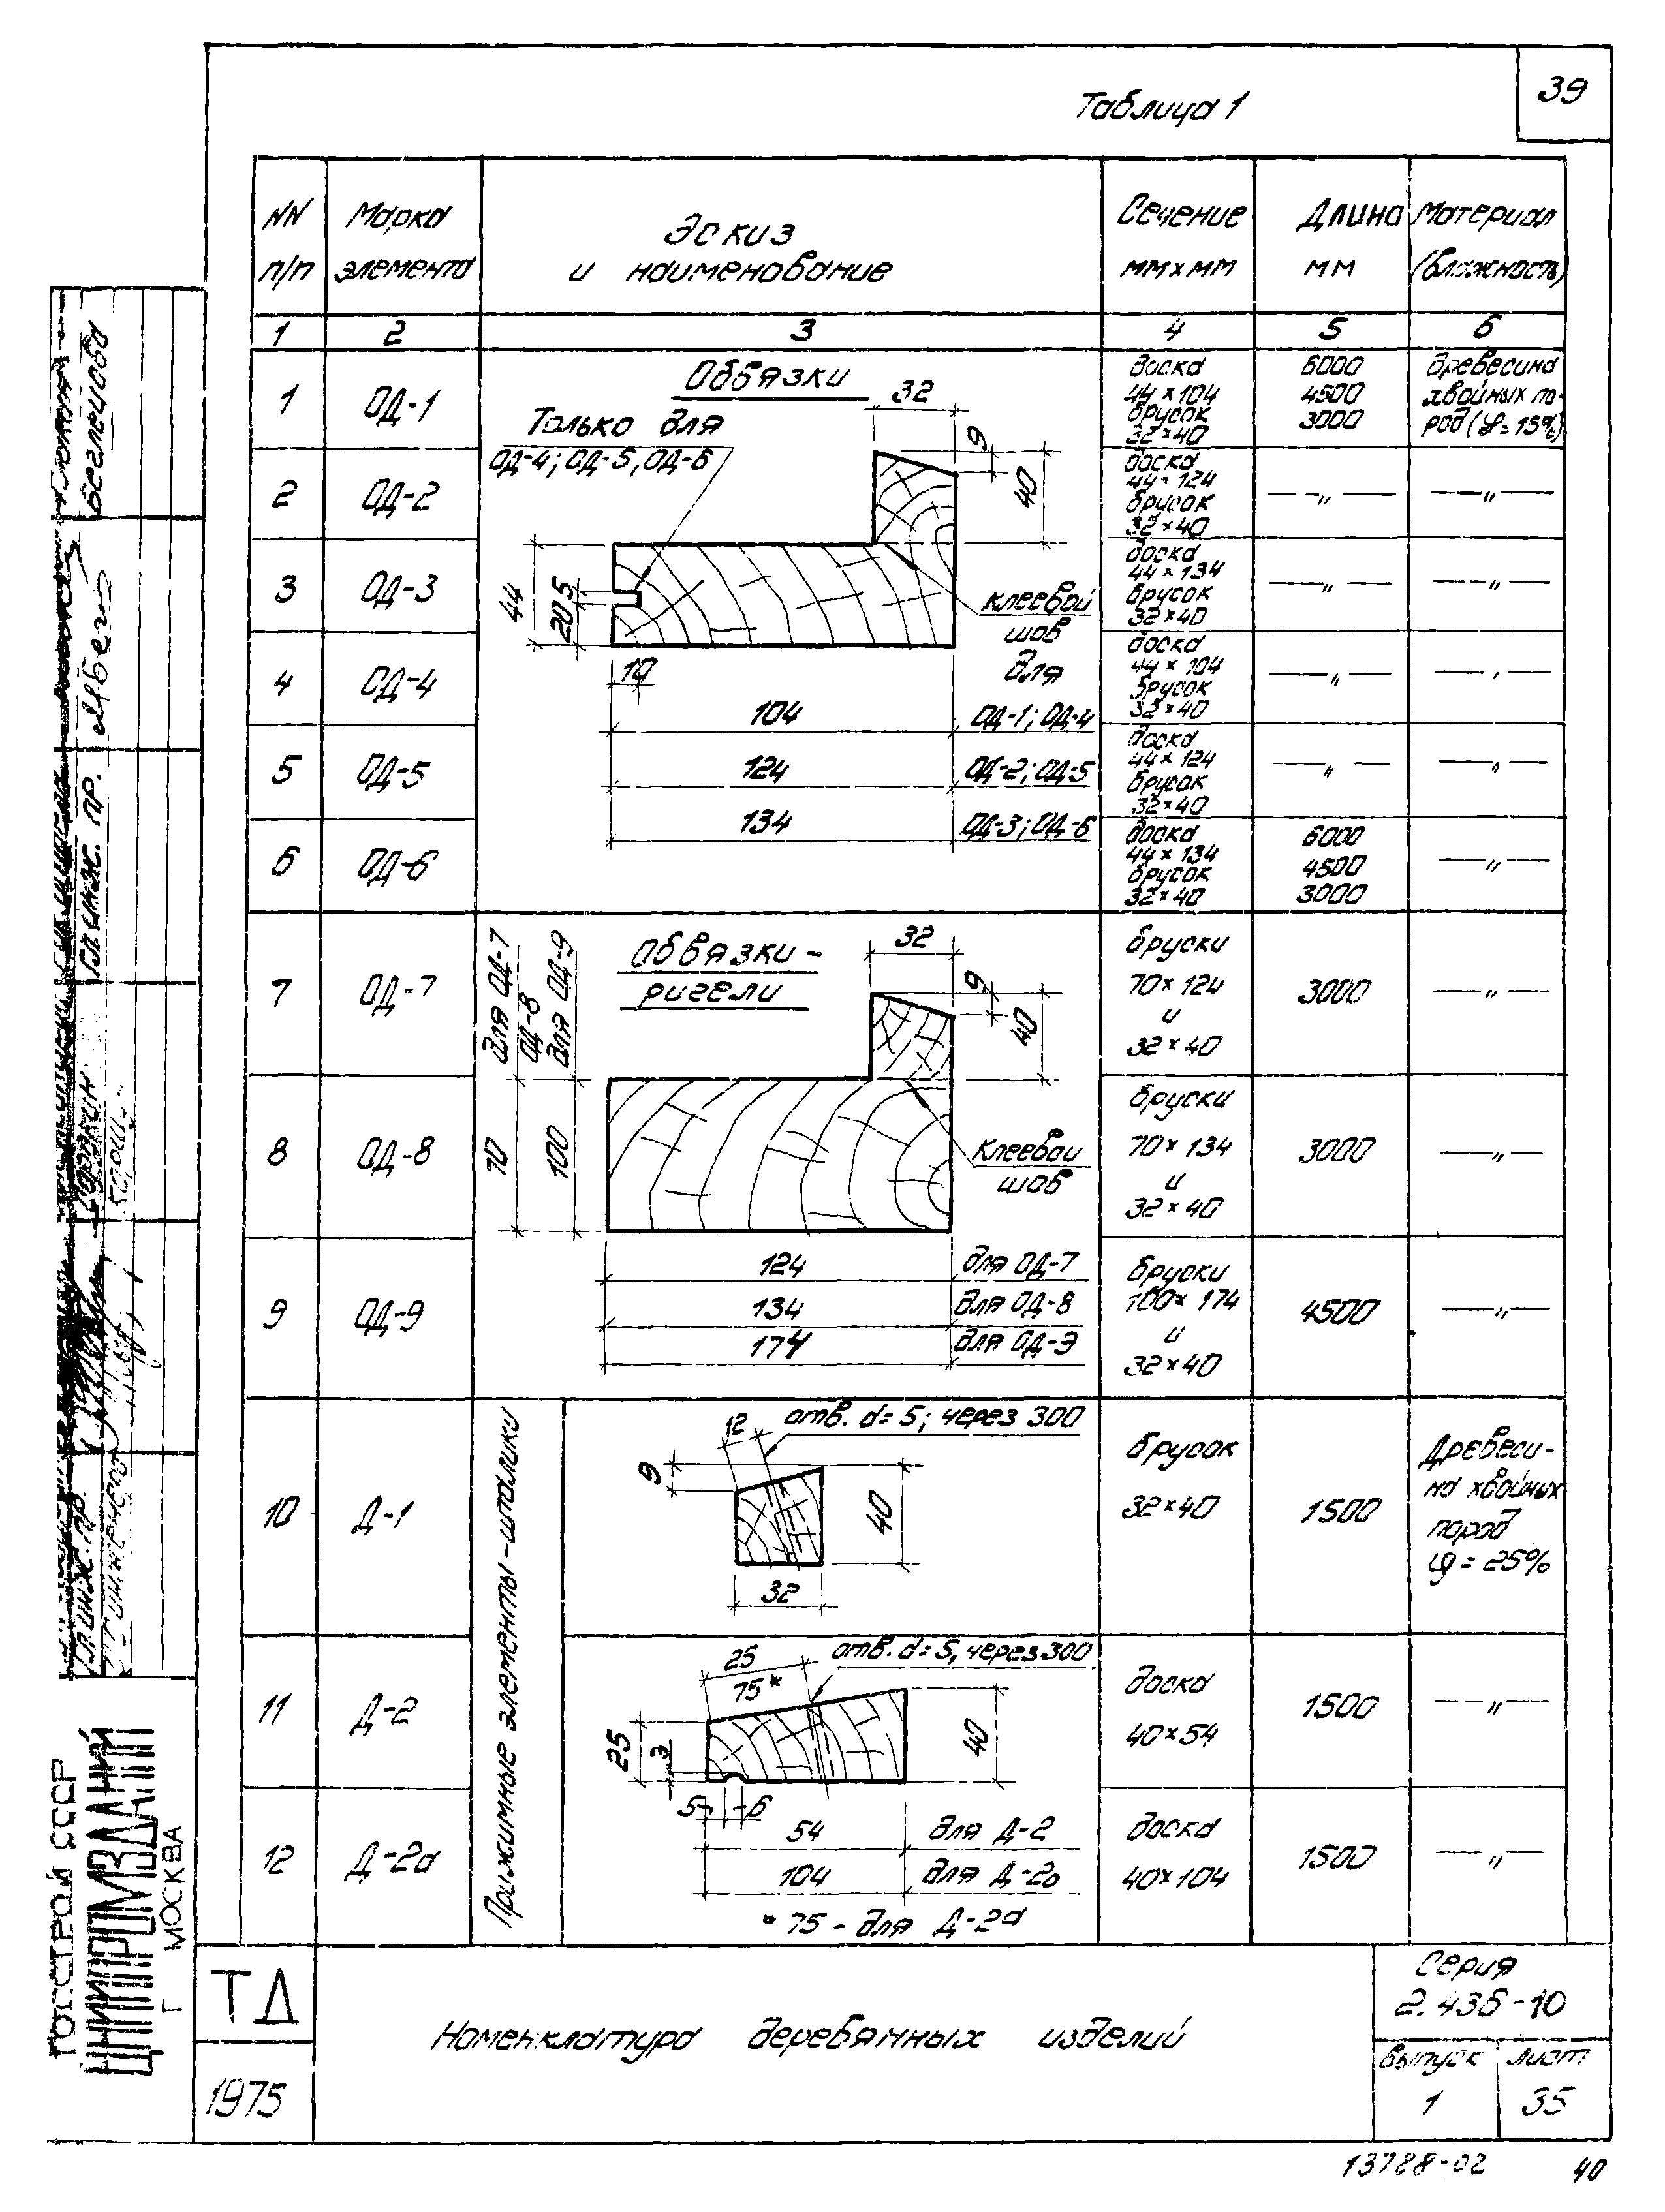 39
Таблица 1
NN п/п
Марка элемента
Эскиз и наименование
Сечение мм х мм
Длина мм
Материал (влажность)
1 2 3 4 5 6
1 ОД-1
доска 44×104 брусок 32×40
6000 4500 3000
древесина хвойных по-
род (φ=15%)
Обвязки
Только для
ОД-4; ОД-5, ОД-6
32
9
40
44
20 5
10
клеевой
шов
для
104 ОД-1; ОД-4
124 ОД-2; ОД-5
134 ОД-3; ОД-6
2 ОД-2
доска 44×124 брусок 32×40
—"— —"—
3 ОД-3
доска 44×134 брусок 32×40
—"— —"—
4 ОД-4
доска 44×104 брусок 32×40
—"— —"—
5 ОД-5
доска 44×124 брусок 32×40
—"— —"—
6 ОД-6
доска 44×134 брусок 32×40
6000 4500 3000
—"—
Обвязки-
ригели
для ОД-7
ОД-8
для ОД-9
70
100
32
9
40
Клеевой
шов
124 для ОД-7
134 для ОД-8
174 для ОД-9
7 ОД-7
бруски 70×124 и 32×40
3000 —"—
8 ОД-8
бруски 70×134 и 32×40
3000 —"—
9 ОД-9
бруски 100×174 и 32×40
4500 —"—
Прижимные элементы-штапики
10 Д-1
12 отв. d=5; через 300
9
40
32
брусок 32×40
1500
Древеси-
на хвойных
пород
φ=25%
11 Д-2
25
75*
отв. d=5, через 300
25
3
40
5 6
54 для Д-2
104 для Д-2а
* 75 - для Д-2а
доска 40×54
1500 —"—
12 Д-2а
доска 40×104
1500 —"—
ТД
1975
Номенклатура деревянных изделий
Серия
2.436-10
Выпуск лист
1 35
13788-02
40
Беглецова
Гл. инж. пр.
ГОССТРОЙ СССР
ЦНИИПРОМЗДАНИЙ
Г МОСКВА